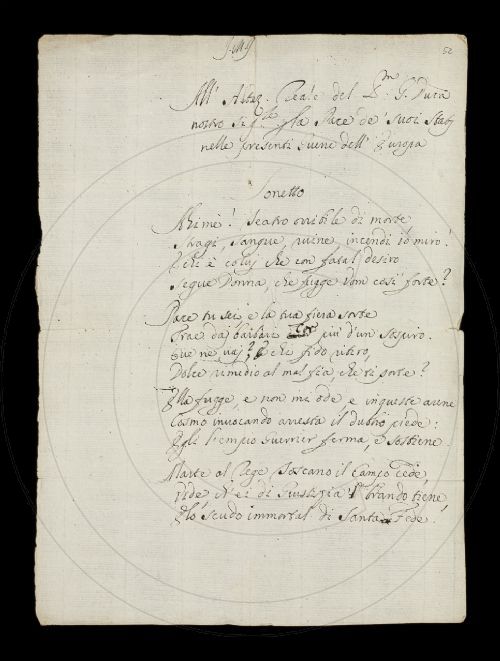 52
All' Altez. Reale del Sr. G. Duca
nostro Sigre p la Pace de' suoi Stati
nelle presenti Guerre dell' Europa
Sonetto
Ahimè! Teatro orribile di morte
Stragi, sangue, ruine, incendi io miro!
E chi è coluj che con fatal desiro
Segue Donna, che fugge Uom così forte?
Pace tu sei e la tua fiera sorte
Trae da barbari più d'un sospiro.
Ove ne vaj? e che fido ritiro,
Dolce rimedio al mal fia, che ti porte?
Ella fugge, e non mi ode e in queste arene
Cosmo invocando arresta il dubbio piede:
Egli l'empio Guerrier ferma, e sostiene:
Marte al Rege Toscano il campo cede,
Vide che di Giustizia il brando tiene
E lo scudo immortal di Santa Fede.